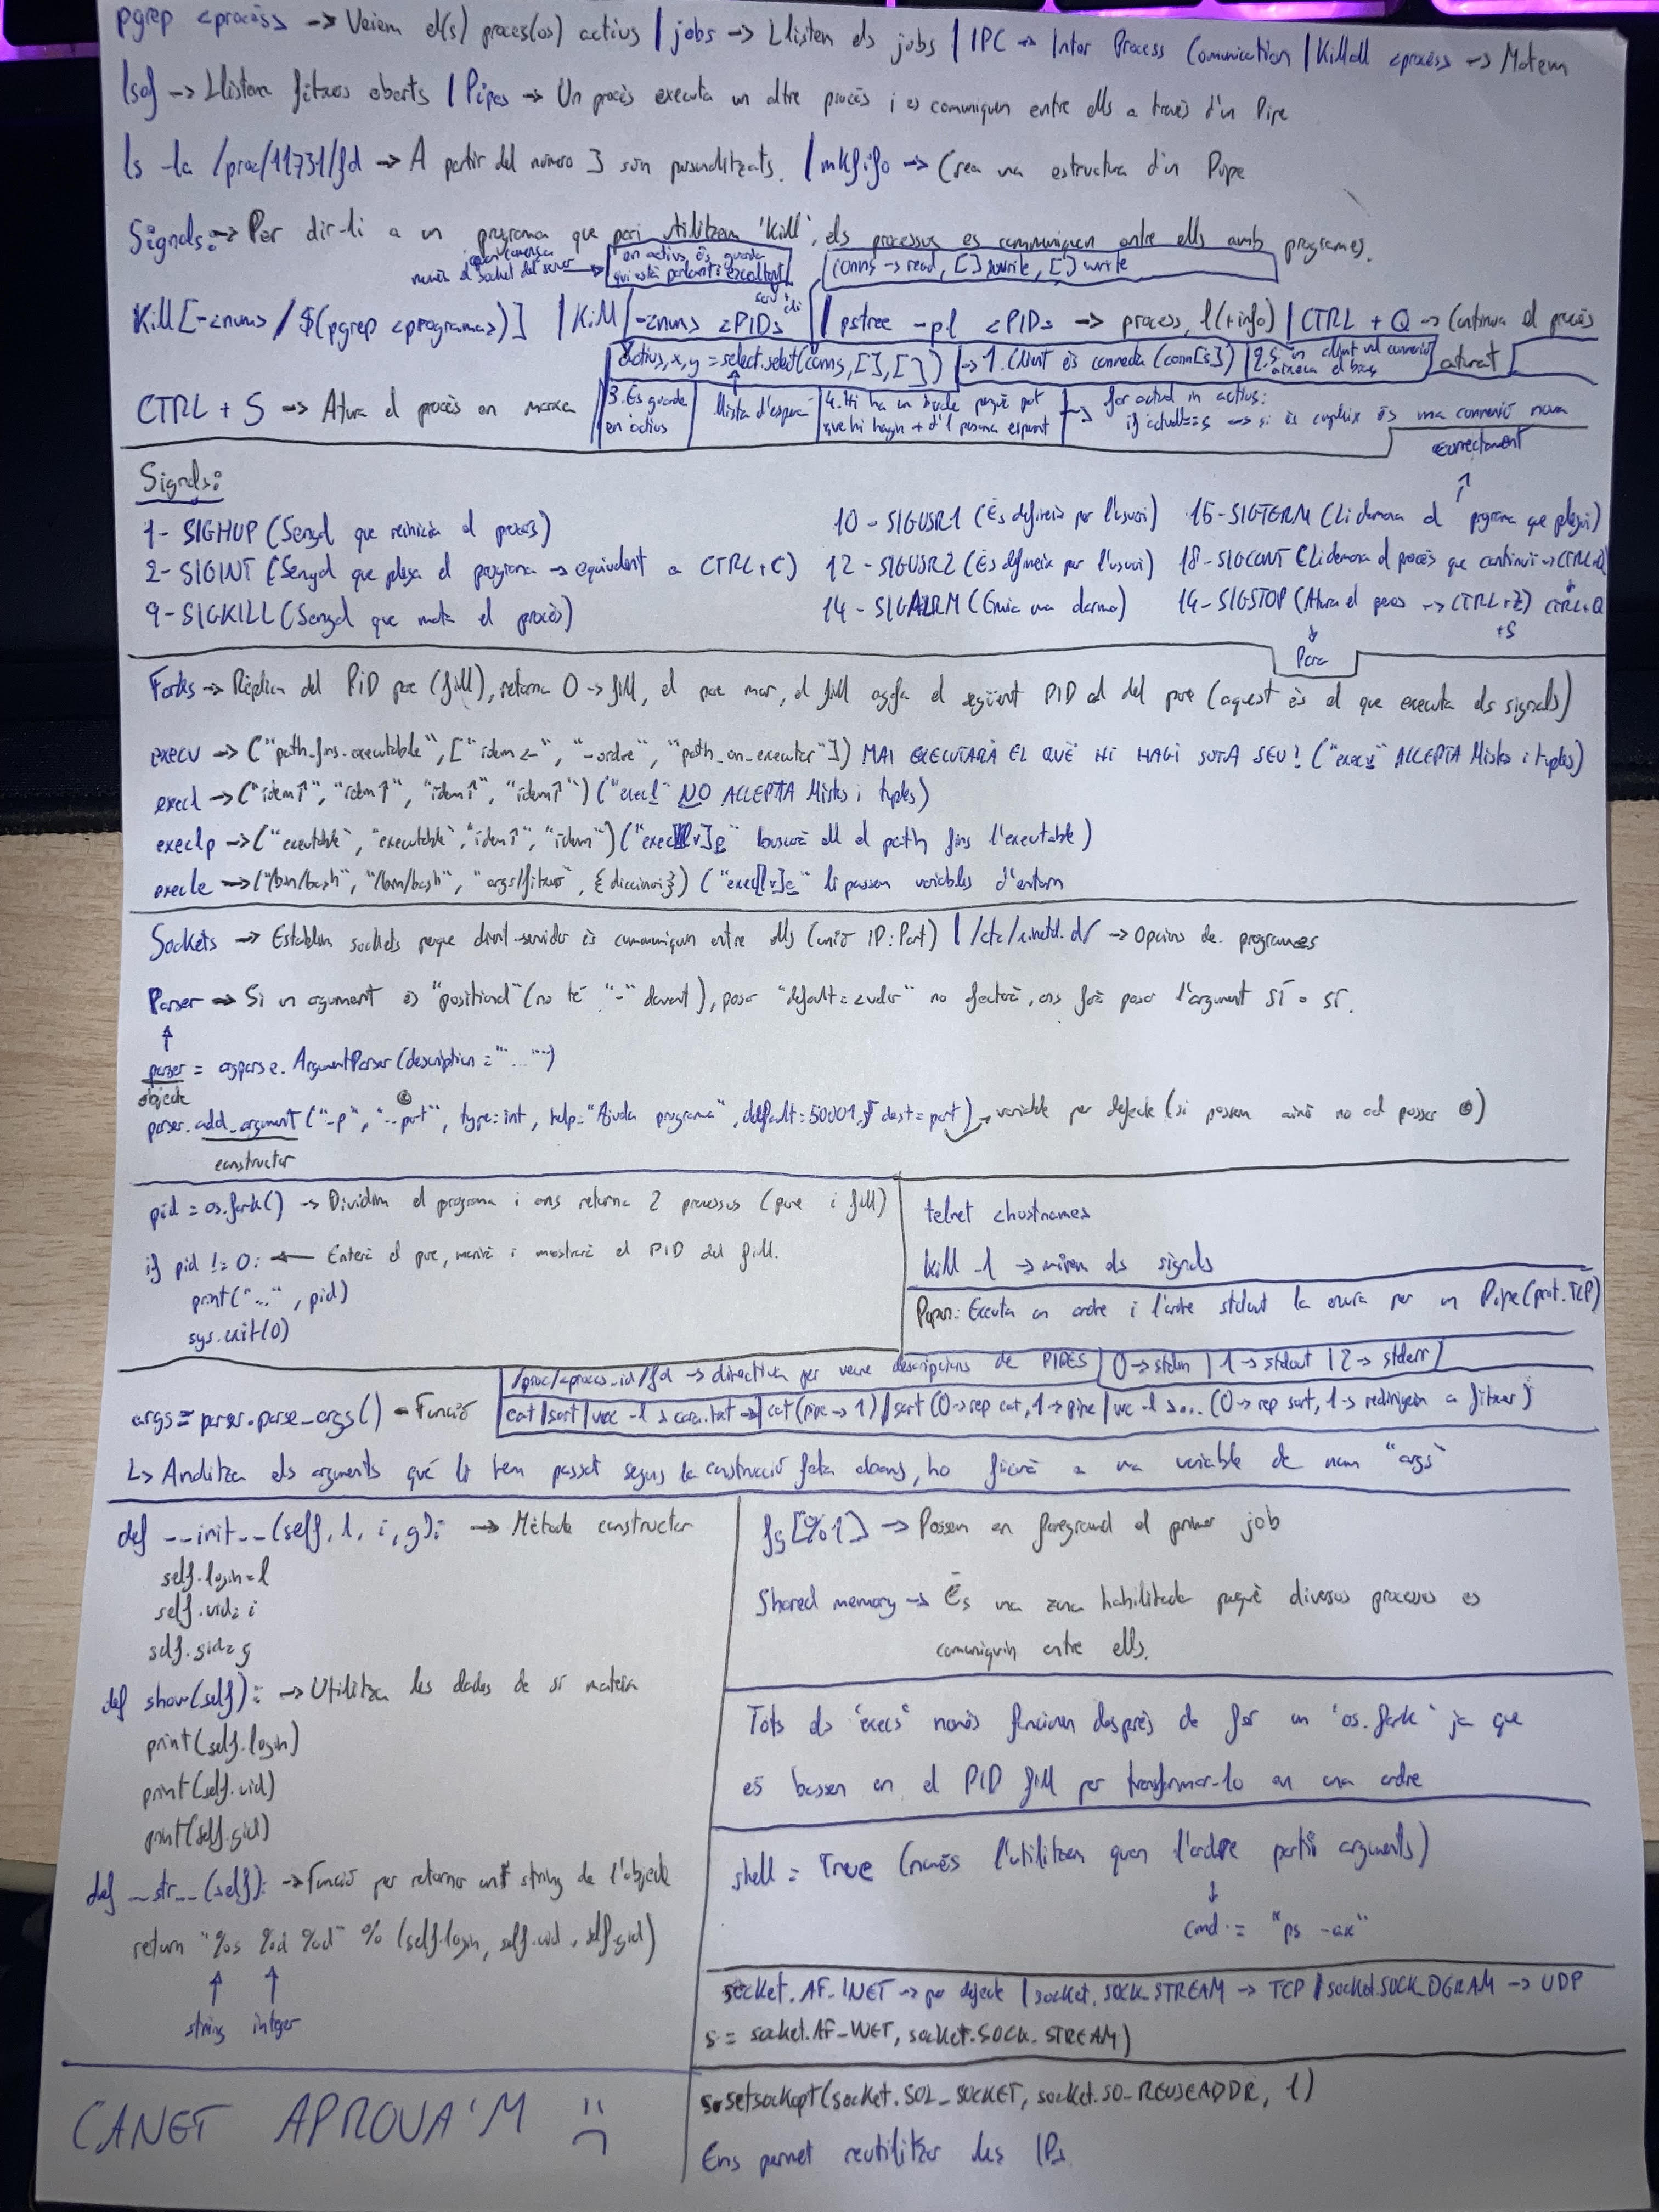 pgrep <procés> -> Veiem el(s) proces(os) actius | jobs -> Llistem els jobs | IPC -> Inter Process Comunication | Killall <procés> -> Matem
lsof -> Llistem fitxers oberts | Pipes -> Un procés executa un altre procés i es comuniquen entre ells a través d'un Pipe
ls -la /proc/11731/fd -> A partir del número 3 són personalitzats. | mkfifo -> Crea una estructura d'un Pipe
Signals: -> Per dir-li a un programa que pari utilitzem 'Kill', els processos es comuniquen entre ells amb programes.
només el socket del server -> en actius, és guarda qui està parlant i escoltant
conns -> read, [] write, []
Kill [-<num> / $(pgrep <programa>)] | Kill -<num> <PID> | pstree -pl <PID> -> process, l(+info) | CTRL + Q -> Continua el procés aturat
actius,x,y = select.select(conns,[],[]) -> 1. Client és connecta (conn[s])
llista d'espera
3. És guarda en actius
4. Hi ha un bucle perquè pot que hi hagin + d'1 persona esperant -> for actual in actius:
if actual == s -> si és compleix és una connexió nova
CTRL + S -> Atura el procés en marxa
Signals:
1- SIGHUP (Senyal que reinicia el procés)
2- SIGINT (Senyal que plega el programa -> equivalent a CTRL+C)
9- SIGKILL (Senyal que mata el procés)
10 - SIGUSR1 (És defineix per l'usuari)
12 - SIGUSR2 (És defineix per l'usuari)
14 - SIGALRM (Envia una alarma)
correctament
15 - SIGTERM (Li demana al programa que plegui)
18 - SIGCONT (Li demana al procés que continuï -> CTRL+Q)
14 - SIGSTOP (Atura el procés -> CTRL+Z) CTRL+Q
+S
Para
Forks -> Rèplica del PID pare (fill), retorna 0 -> fill, el pare mor, el fill agafa el següent PID al del pare (aquest és el que executa els signals)
execv -> ("path_fins_executable", ["idem <-", "-ordre", "path_on_executar"]) MAI EXECUTARÀ EL QUÈ HI HAGI SOTA SEU! ("execv" ACCEPTA llistes i tuples)
execl -> ("idem↑", "idem↑", "idem↑", "idem↑") ("execl" NO ACCEPTA llistes i tuples)
execlp -> ("executable", "executable", "idem↑", "idem") ("exec[l v]p" buscarà ell el path fins l'executable)
execle -> ("/bin/bash", "/bin/bash", "args/fitxers", {diccionari}) ("exec[l v]e" li passem variables d'entorn
Sockets -> Establim sockets perque client-servidor és comuniquen entre ells (unió IP:Port) | /etc/xinetd.d/ -> Opcions de programes
Parser -> Si un argument és "positional" (no té "-" davant), posar "default=<valor>" no afectarà, ens farà posar l'argument SÍ o SÍ.
parser = argparse.ArgumentParser(description="""...""")
objecte
parser.add_argument("-p", "--port", type=int, help="Ajuda programa", default=50001, dest=port) -> variable per defecte (si posem això no cal posar ☺)
constructor
pid = os.fork() -> Dividim el programa i ens retorna 2 processos (pare i fill)
if pid != 0: <- Entrarà el pare, morirà i mostrarà el PID del fill.
print("...", pid)
sys.exit(0)
telnet <hostname>
kill -l -> mirem els signals
Popen: Executa un ordre i l'ordre stdout la envia per un Pipe (prot. TCP)
/proc/<process_id>/fd -> directiva per veure descripcions de PIPES | 0 -> stdin | 1 -> stdout | 2 -> stderr
args = parser.parse_args() - Funció
cat | sort | wc -l > cara.txt -> cat (pipe -> 1) | sort (0 -> rep cat, 1 -> pipe | wc -l >... (0 -> rep sort, 1 -> redirigeix a fitxer)
L> Analitza els arguments què li hem passat segons la construcció feta abans, ho ficarà a una variable de nom "args"
def __init__(self, l, i, g): -> Mètode constructor
self.login=l
self.uid=i
self.gid=g
def show(self): -> Utilitza les dades de sí mateix
print(self.login)
print(self.uid)
print(self.gid)
def __str__(self): -> Funció per retornar un string de l'objecte
return "%s %d %d" % (self.login, self.uid, self.gid)
string integer
CANET APROVA'M :(
fg [%1] -> Posem en foreground el primer job
Shared memory -> És una zona habilitada perquè diversos processos es
comuniquin entre ells.
Tots els 'execs' només funcionen després de fer un 'os.fork' ja que
es bassen en el PID fill per transformar-lo en una ordre
shell = True (només l'utilitzem quan l'ordre porti arguments)
cmd = "ps -ax"
socket.AF_INET -> per defecte | socket.SOCK_STREAM -> TCP | socket.SOCK_DGRAM -> UDP
s = socket.AF_INET, socket.SOCK_STREAM)
s.setsockopt(socket.SOL_SOCKET, socket.SO_REUSEADDR, 1)
Ens permet reutilitzar les IPs